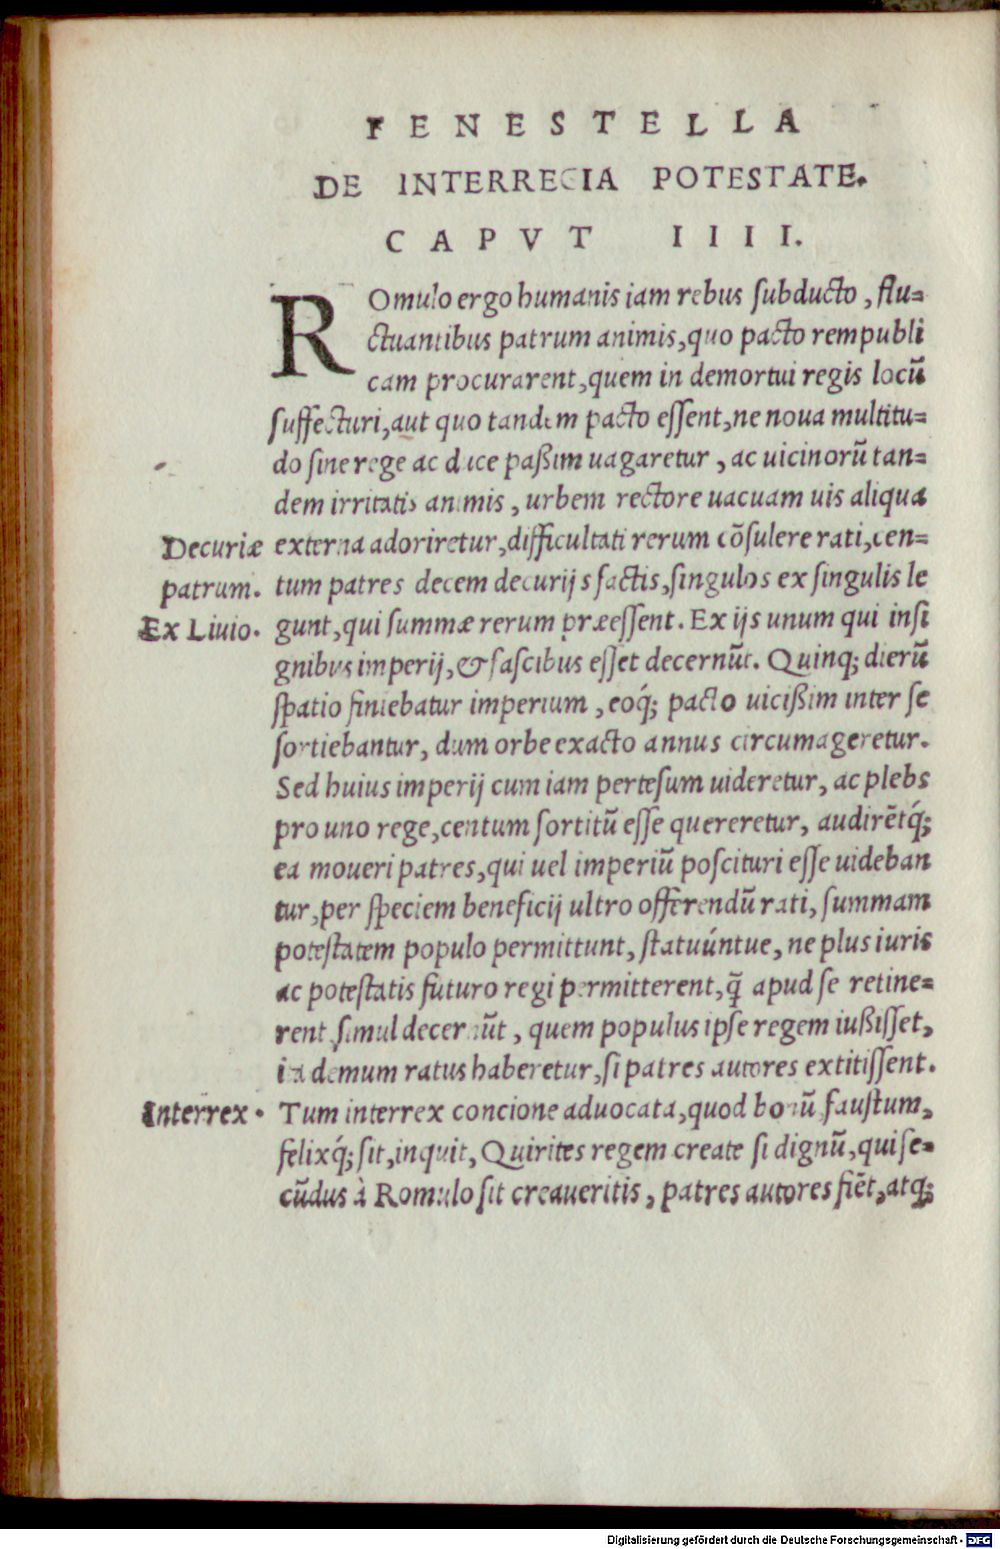 FENESTELLA
DE INTERREGIA POTESTATE.
CAPVT IIII.
ROmulo ergo humanis iam rebus subducto, flu=
ctuantibus patrum animis, quo pacto rempubli
cam procurarent, quem in demortui regis locū
suffecturi, aut quo tandem pacto essent, ne noua multitu=
do sine rege ac duce paßim uagaretur, ac uicinorū tan=
dem irritatis animis, urbem rectore uacuam uis aliqua
Decuriæ externa adoriretur, difficultati rerum cōsulere rati, cen=
patrum. tum patres decem decurijs factis, singulos ex singulis le
Ex Liuio. gunt, qui summæ rerum præessent. Ex ijs unum qui insi
gnibus imperij, & fascibus esset decernūt. Quinq; dierū
spatio finiebatur imperium, eoq́; pacto uicißim inter se
sortiebantur, dum orbe exacto annus circumageretur.
Sed huius imperij cum iam pertesum uideretur, ac plebs
pro uno rege, centum sortitū esse quereretur, audirētq́;
ea moueri patres, qui uel imperiū poscituri esse uideban
tur, per speciem beneficij ultro offerendū rati, summam
potestatem populo permittunt, statuúntue, ne plus iuris
ac potestatis futuro regi permitterent, q̄ apud se retine=
rent. simul decernūt, quem populus ipse regem iußisset,
ita demum ratus haberetur, si patres autores extitissent.
Interrex. Tum interrex concione aduocata, quod bonū faustum,
felixq́; sit, inquit, Quirites regem create si dignū, qui se=
cūdus à Romulo sit creaueritis, patres autores fiēt, atq;
Digitalisierung gefördert durch die Deutsche Forschungsgemeinschaft - DFG